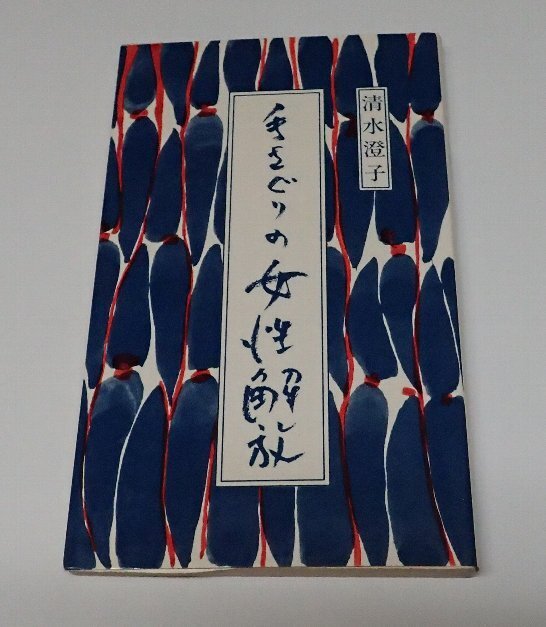 清水澄子
手さぐりの女性解放